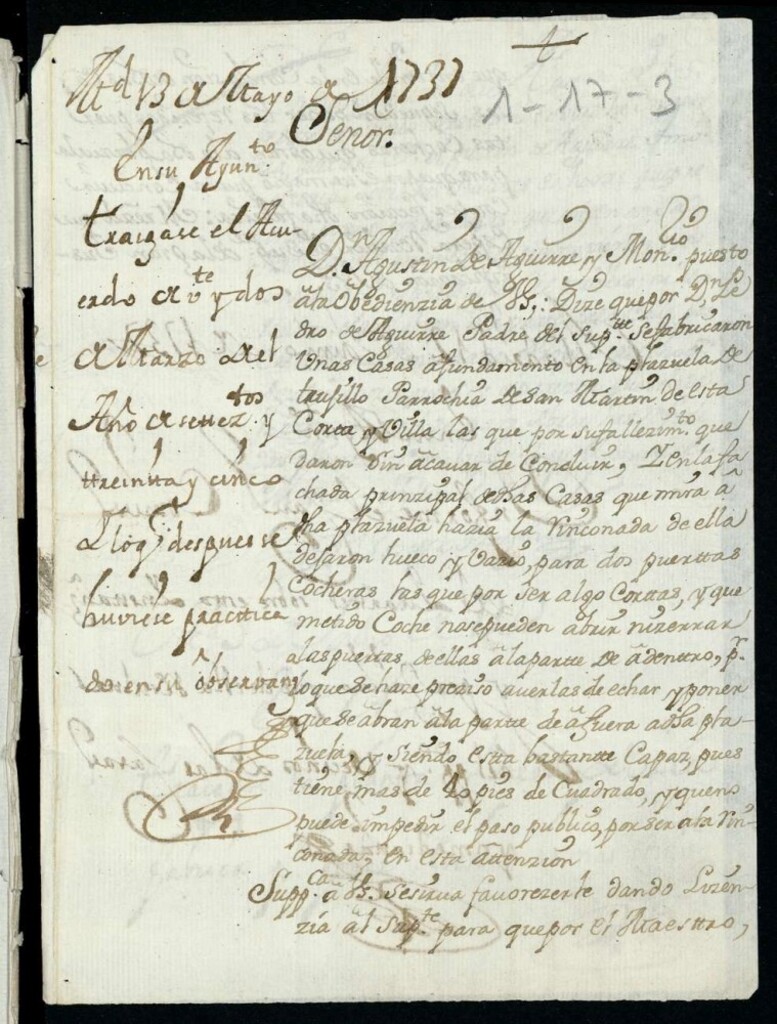 †
Md 13 de Mayo de 1737
1-17-3
Señor.
En su Ayunto.
traigase el Acu-
erdo de vte y dos
de Marzo del
Año de settezttos y
treinta y cinco
y lo q̃ despues se
huviese practica
do en su observanza
Dn. Agustin de Aguirre y Mon.rio puesto
a la obedienzia de VS.: Dize que por Dn. Pe
dro de Aguirre Padre del supte. se fabricaron
Unas Casas a fundamento en la plazuela de
trujillo Parrochia de San Martin de esta
Corte y Villa las que por su fallezimto. que
daron sin acavar de Concluir, Y en la fa
chada prinzipal de dhas Casas que mira â
dha plazuela hazia la rinconada de ella
dejaron hueco y vazio, para dos puerttas
cocheras las que por ser algo Cortas, y que
metido Coche no se pueden abrir ni zerrar
las puertas de ellas â la partte de âdenttro, pr.
lo que se haze preziso averlas de echar, y poner
que se abran â la partte de afuera a dha pla-
zuela, y siendo estta bastantte Capaz, pues
tiene mas de 40 pies de Cuadrado, y que no
puede impedir el paso publico, por ser a la Rin
conada, en esta attenzion
Suppca. â VS. se sirva favorezerle dando Lizen-
zia âl supte. para que por el Maesttro,